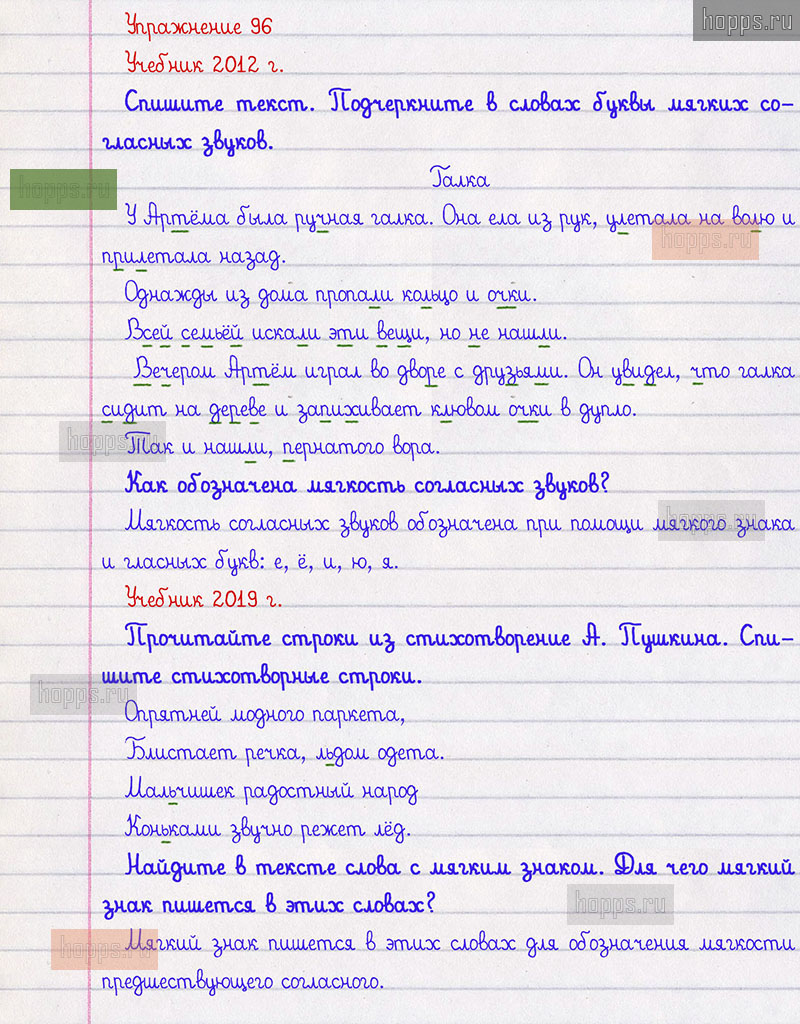 hopps.ru
Упражнение 96
Учебник 2012 г.
Спишите текст. Подчеркните в словах буквы мягких со-
гласных звуков.
Галка
hopps.ru
У Артёма была ручная галка. Она ела из рук, улетала на волю и
hopps.ru
прилетала назад.
Однажды из дома пропали кольцо и очки.
Всей семьёй искали эти вещи, но не нашли.
Вечером Артём играл во дворе с друзьями. Он увидел, что галка
сидит на дереве и запихивает клювом очки в дупло.
hopps.ru
Так и нашли, пернатого вора.
Как обозначена мягкость согласных звуков?
hopps.ru
Мягкость согласных звуков обозначена при помощи мягкого знака
и гласных букв: е, ё, и, ю, я.
Учебник 2019 г.
Прочитайте строки из стихотворение А. Пушкина. Спи-
шите стихотворные строки.
hopps.ru
Опрятней модного паркета,
Блистает речка, льдом одета.
Мальчишек радостный народ
Коньками звучно режет лёд.
Найдите в тексте слова с мягким знаком. Для чего мягкий
знак пишется в этих словах?
hopps.ru
hopps.ru
Мягкий знак пишется в этих словах для обозначения мягкости
предшествующего согласного.